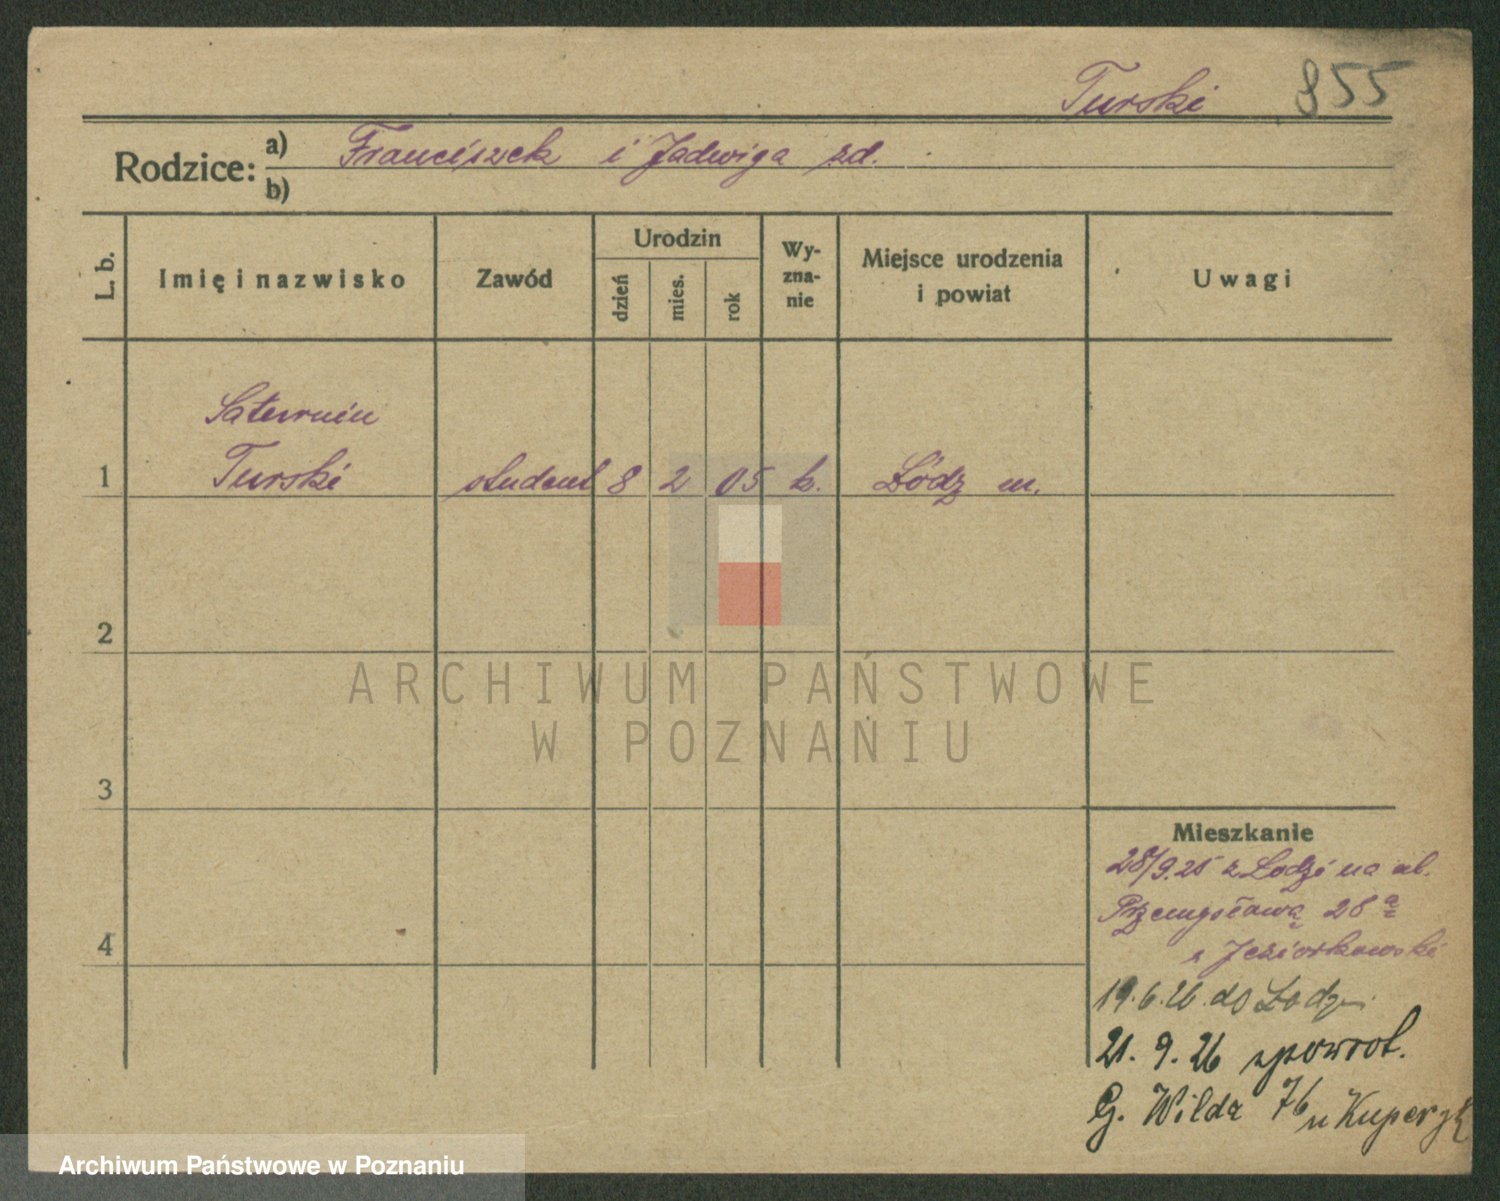 Turski 855
Rodzice: a) Franciszek i Jadwiga zd.
b)
L. b.
Imię i nazwisko
Zawód
Urodzin
dzień
mies.
rok
Wy-
zna-
nie
Miejsce urodzenia
i powiat
Uwagi
Saturnin
1 Turski student 8 2 05 k. Łódź m.
2
3
4
ARCHIWUM PAŃSTWOWE
W POZNANIU
Mieszkanie
28/9.25 z Łodzi na ul.
Przemysłową 28 a
Jeziorkowski
19.6.26 do Łodzi.
21.9.26 zpowrot.
G. Wilda 76 u
Archiwum Państwowe w Poznaniu